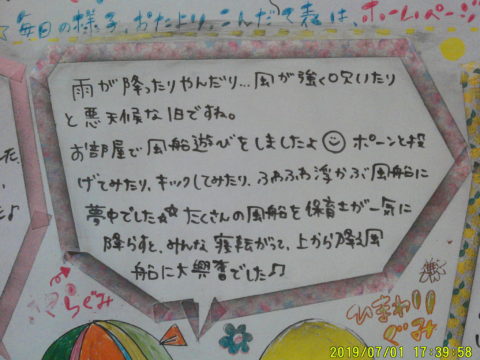 毎日の様子、おたより、こんだて表は、ホームページ
雨が降ったりやんだり…風が強く吹いたり
と悪天候な1日ですね。
お部屋で風船遊びをしましたよ☺ ポーンと投
げてみたり、キックしてみたり、ふわふわ浮かぶ風船に
夢中でした☆☆ たくさんの風船を保育士が一気に
降らすと、みんな寝転がって、上から降る風
船に大興奮でした♪
ぐみ
ひまわり
ぐみ
2019/07/01 17:39:58